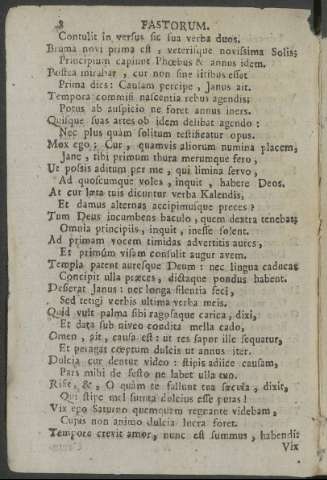 8 FASTORUM.
Contulit in versus sic sua verba duos.
Bruma novi prima est, veterisque novissima Solis;
Principium capiunt Phœbus & annus idem.
Postea mirabar, cur non sine litibus esset
Prima dies: Causam percipe, Janus ait.
Tempora commisi nascentia rebus agendis;
Totus ab auspicio ne foret annus iners.
Quisque suas artes ob idem delibat agendo:
Nec plus quam solitum testificatur opus.
Mox ego; Cur, quamvis aliorum numina placem,
Jane, tibi primum thura merumque fero,
Ut possis aditum per me, qui limina servo,
Ad quoscumque voles, inquit, habere Deos.
At cur læta tuis dicuntur verba Kalendis,
Et damus alternas accipimusque preces?
Tum Deus incumbens baculo, quem dextra tenebat;
Omnia principiis, inquit, inesse solent.
Ad primam vocem timidas advertitis aures,
Et primum visam consulit augur avem.
Templa patent auresque Deum: nec lingua caducas
Concipit ulla preces, dictaque pondus habent.
Desierat Janus: nec longa silentia feci,
Sed tetigi verbis ultima verba meis.
Quid vult palma sibi rugosaque carica, dixi,
Et data sub niveo condita mella cado,
Omen, ait, causa est: ut res sapor ille sequatur,
Et peragat cœptum dulcis ut annus iter.
Dulcia cur dentur video: stipis adjice causam,
Pars mihi de festo ne labet ulla tuo.
Risit, &, O quàm te fallunt tua sæcula, dixit,
Qui stipe mel sumta dulcius esse putas!
Vix ego Saturno quemquam regnante videbam,
Cujus non animo dulcia lucra forent.
Tempore crevit amor, nunc est summus, habendi:
Vix